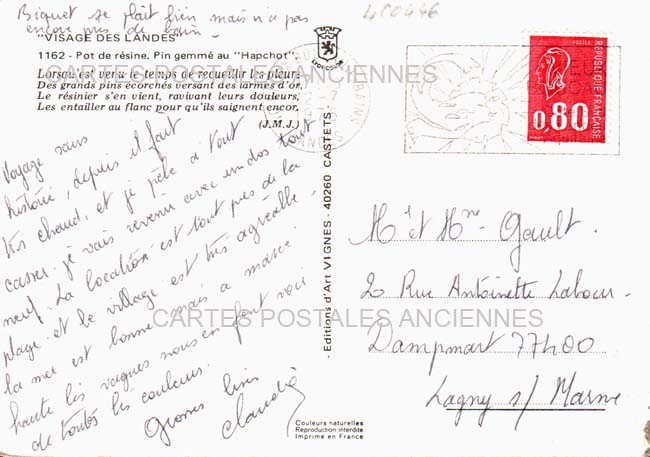 Biquet se plaît bien mais n'a pas
encore pris de bain.
480446
"VISAGE DES LANDES"
1162 - Pot de résine, Pin gemmé au "Hapchot".
LYDICOLOR
Lorsqu'est venu le temps de recueillir les pleurs
Des grands pins écorchés versant des larmes d'or,
Le résinier s'en vient, ravivant leurs douleurs,
Les entailler au flanc pour qu'ils saignent encor.
(J.M.J.)
CARTES POSTALES ANCIENNES
Voyage sans
histoire, depuis il fait
très chaud, et je pèle à tout
casser. je vais revenir avec un dos tout
neuf. La location est tout près de la
plage et le village est très agréable.
la mer est bonne mais à marée
haute les vagues nous en font voir
de toutes les couleurs.
Grosses bises
Claudie
Editions d'Art VIGNES - 40260 CASTETS -
POSTES
REPUBLIQUE FRANÇAISE
0,80
Mr et Mme Gault.
2 Rue Antoinette Labour
CARTES POSTALES ANCIENNES
Dampmart 77400
Lagny s/ Marne
Couleurs naturelles
Reproduction interdite
Imprimé en France